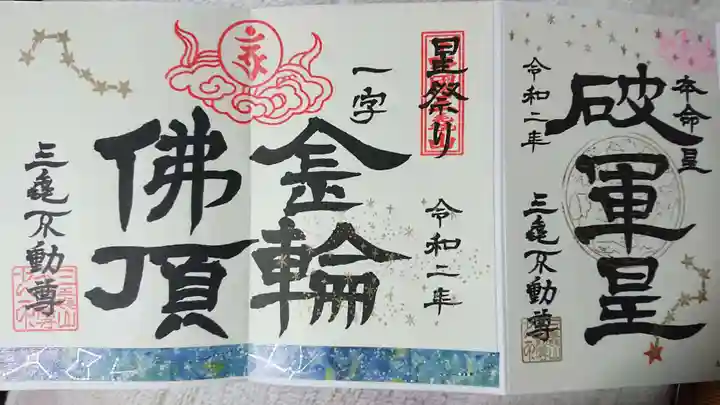 本命星
破軍星
令和二年
三亀不動尊
星祭り
一字
金輪
佛頂
令和二年
三亀不動尊